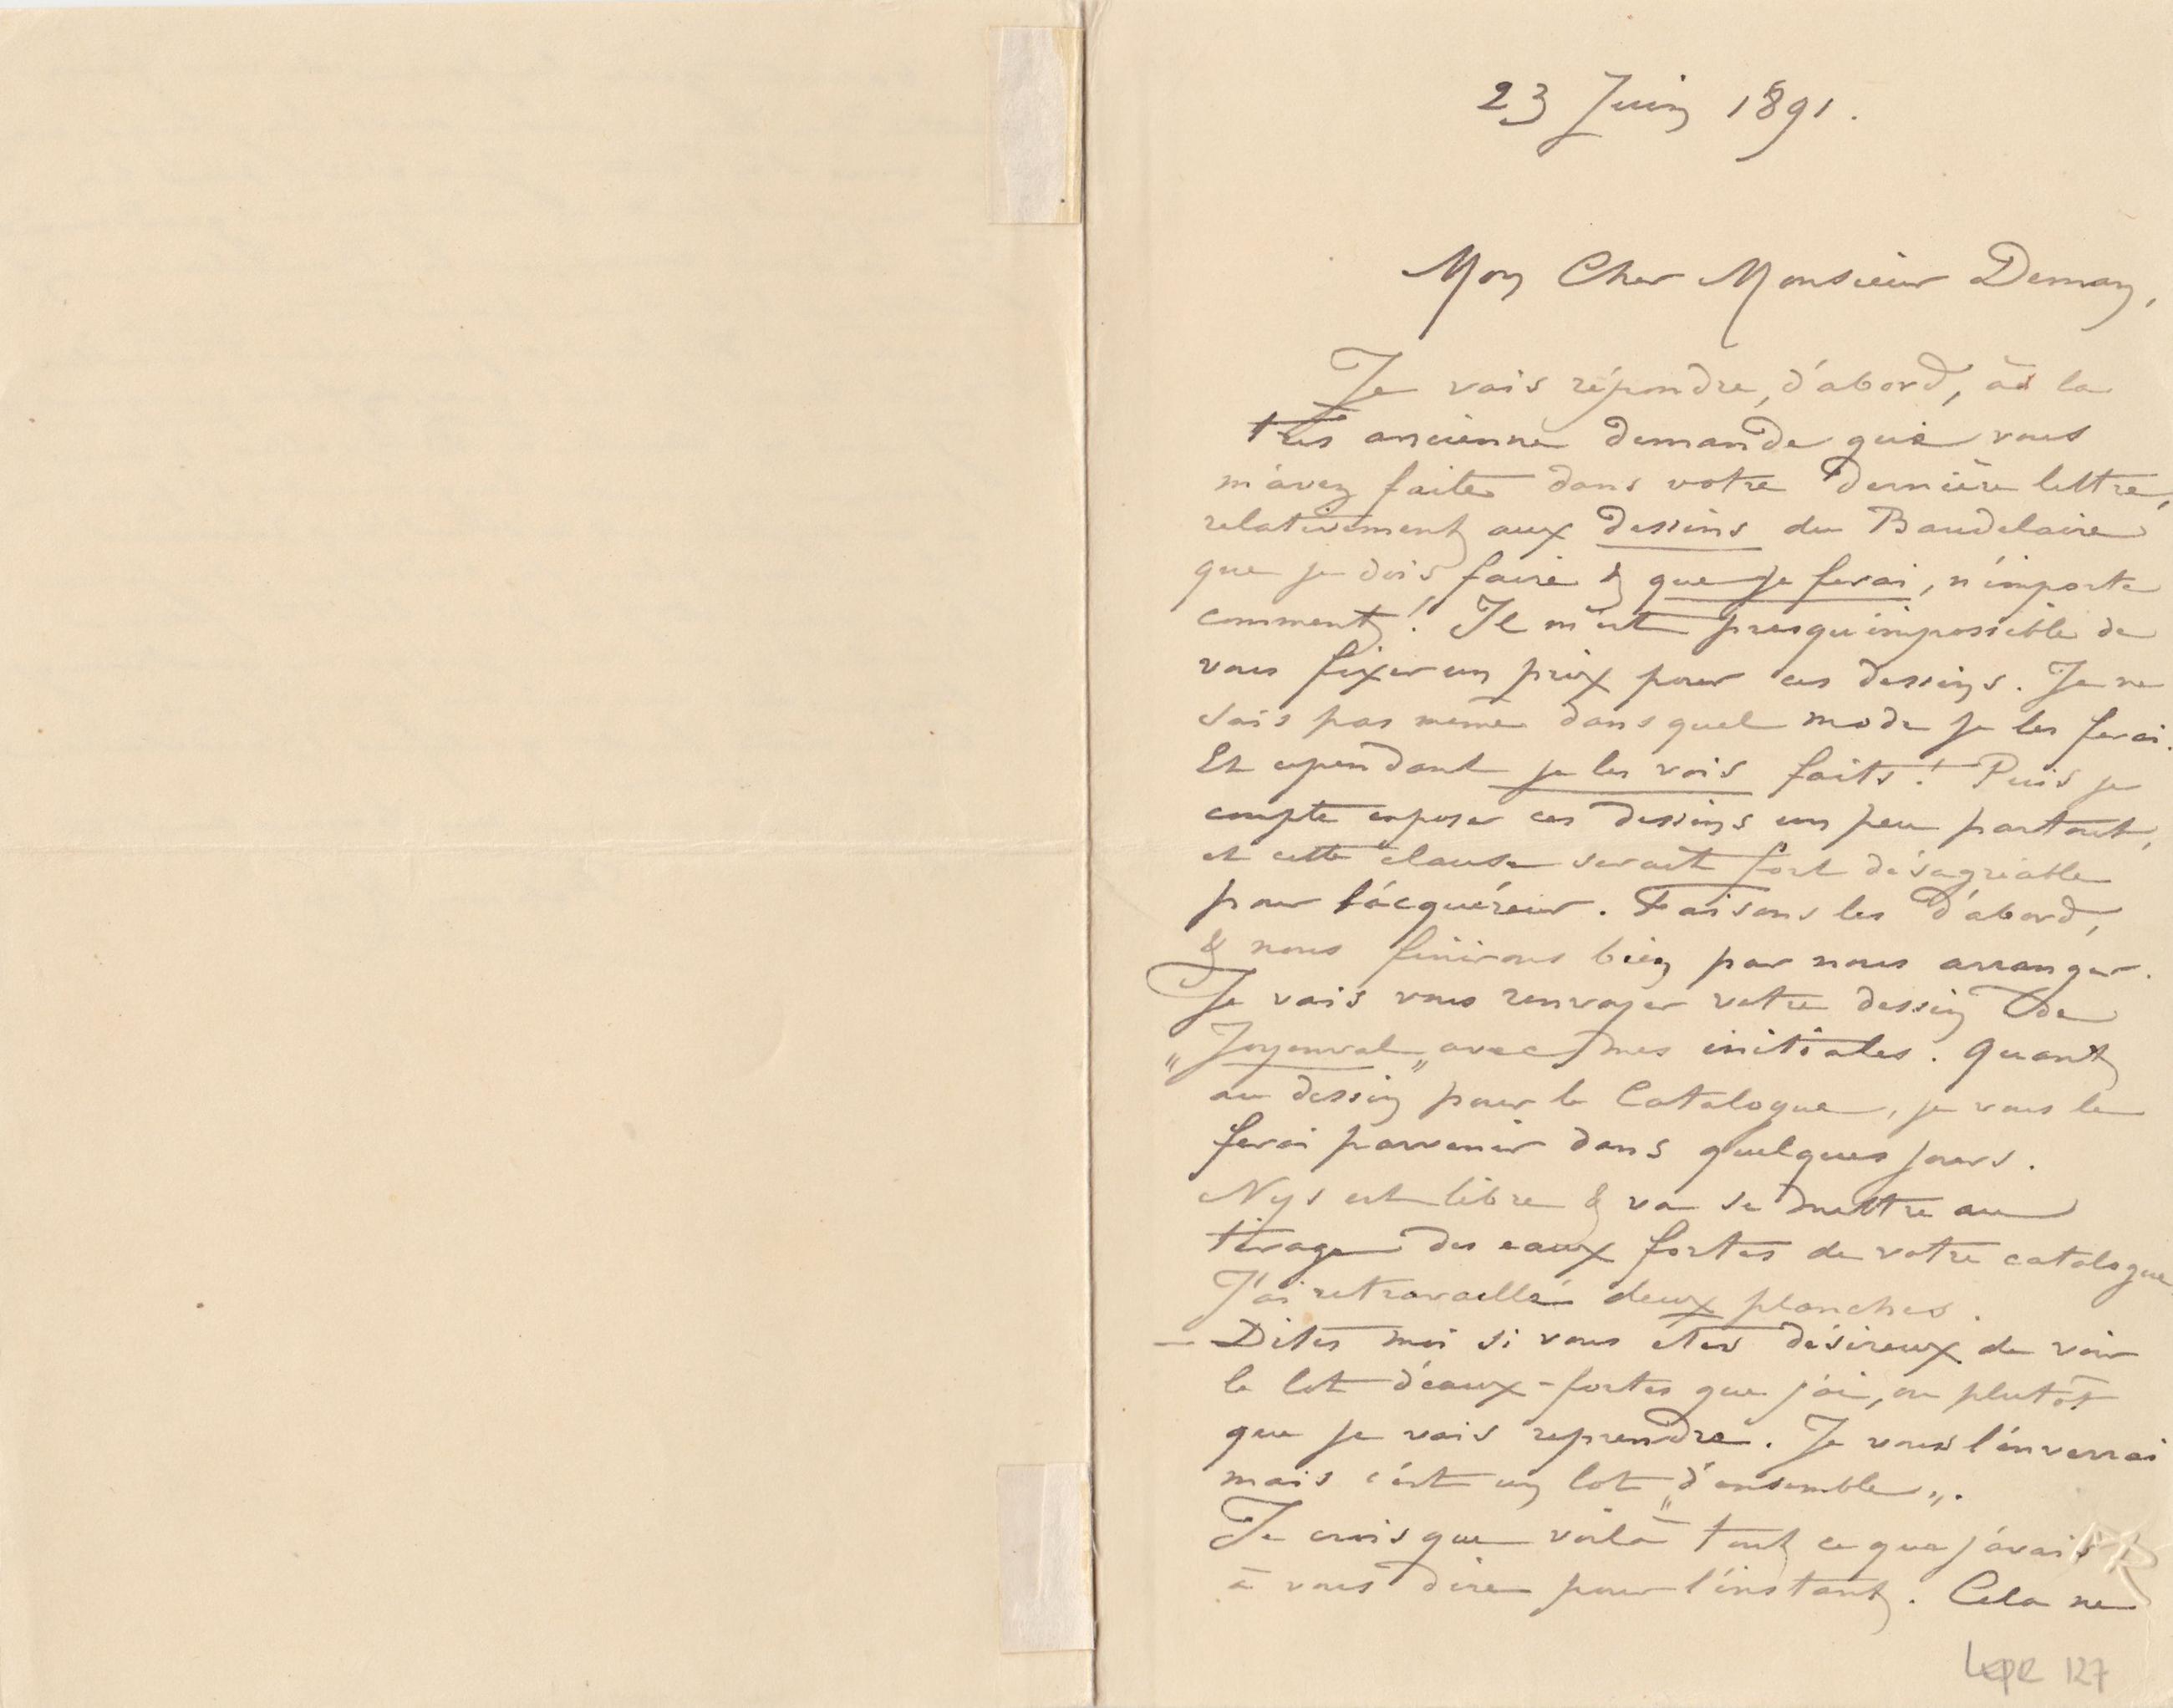 23 Juin 1891.
Mon Cher Monsieur Deman,
Je vais répondre, d'abord, à la
très ancienne demande que vous
m'avez faite dans votre dernière lettre,
relativement aux dessins du Baudelaire
que je dois faire & que je ferai, n'importe
comment! Il m'est presqu'impossible de
vous fixer un prix pour ces dessins. Je ne
sais pas même dans quel mode je les ferai.
Et cependant je les vois faits! Puis je
compte exposer ces dessins un peu partout,
et cette clause serait fort désagréable
pour l'acquéreur. Faisons les d'abord,
& nous finirons bien par nous arranger.
Je vais vous renvoyer votre dessin de
„Joyenval„ avec mes initiales. Quant
au dessin pour le Catalogue, je vous le
ferai parvenir dans quelques jours.
Nys est libre & va se mettre au
tirage des eaux fortes de votre catalogue
J'ai retravaillé deux planches.
— Dites moi si vous êtes désireux de voir
le lot d'eaux-fortes que j'ai, ou plutôt
que je vais reprendre. Je vous l'enverrai
mais c'est un lot „d'ensemble„.
Je crois que voilà tout ce que j'avais
à vous dire pour l'instant. Cela ne
127